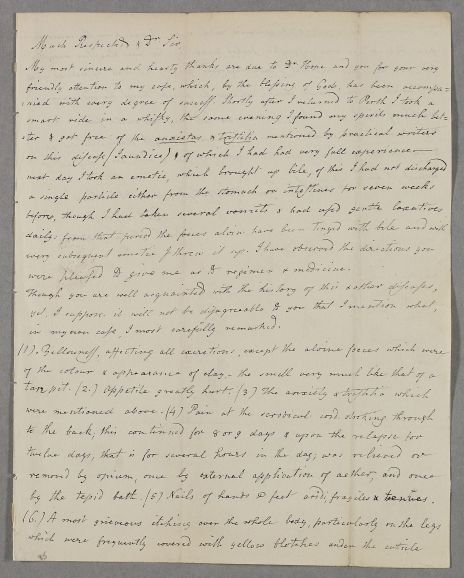 Much Respected & Dr Sir,
My most sincere and hearty thanks are due to Dr Home and you for your very
friendly attention to my case, which, by the blessing of God, has been accompa-
-nied with every degree of success. Shortly after I returned to Perth I took a
smart ride in a whisky, the same evening I found my spirits much bet-
ter & got free of the anxietas & tristitia mentioned by practical writers
on this disease (Jaundice) & of which I had had very full experience—
next day I took an emetic, which brought up bile, of this I had not discharged
a single particle either from the stomach or intestines for seven weeks
before, though I had taken several vomits & had used gentle laxatives
daily: from that period the feces alvin have been tinged with bile and with
every subsequent emetic I threw it up. I have observed the directions you
were pleased to give me as to regimen & medicine.
Though you are well acquainted with the history of this & other diseases,
yet, I suppose it will not be disagreeable to you that I mention what,
in my own case, I most carefully remarked.
(1). Yellowness, affecting all excretions, except the alvine feces which were
of the colour & appearance of clay,- the smell very much like that of a
tan pit. (2.) Appetite greatly hurt. (3) The anxiety & tristitia which
were mentioned above. (4) Pain at the scrobicul cord striking through
to the back; this continued for 8 or 9 days & upon the relapse for
twelve days, that is for several hours in the day; was relieved or
removed by opium, once by external application of aether, and once
by the tepid bath. (5) Nails of hands & feet arid, fragiles & tenues.
(6.) A most grievous itching over the whole body, particularly on the legs
which were frequently covered with yellow blotches under the cuticle